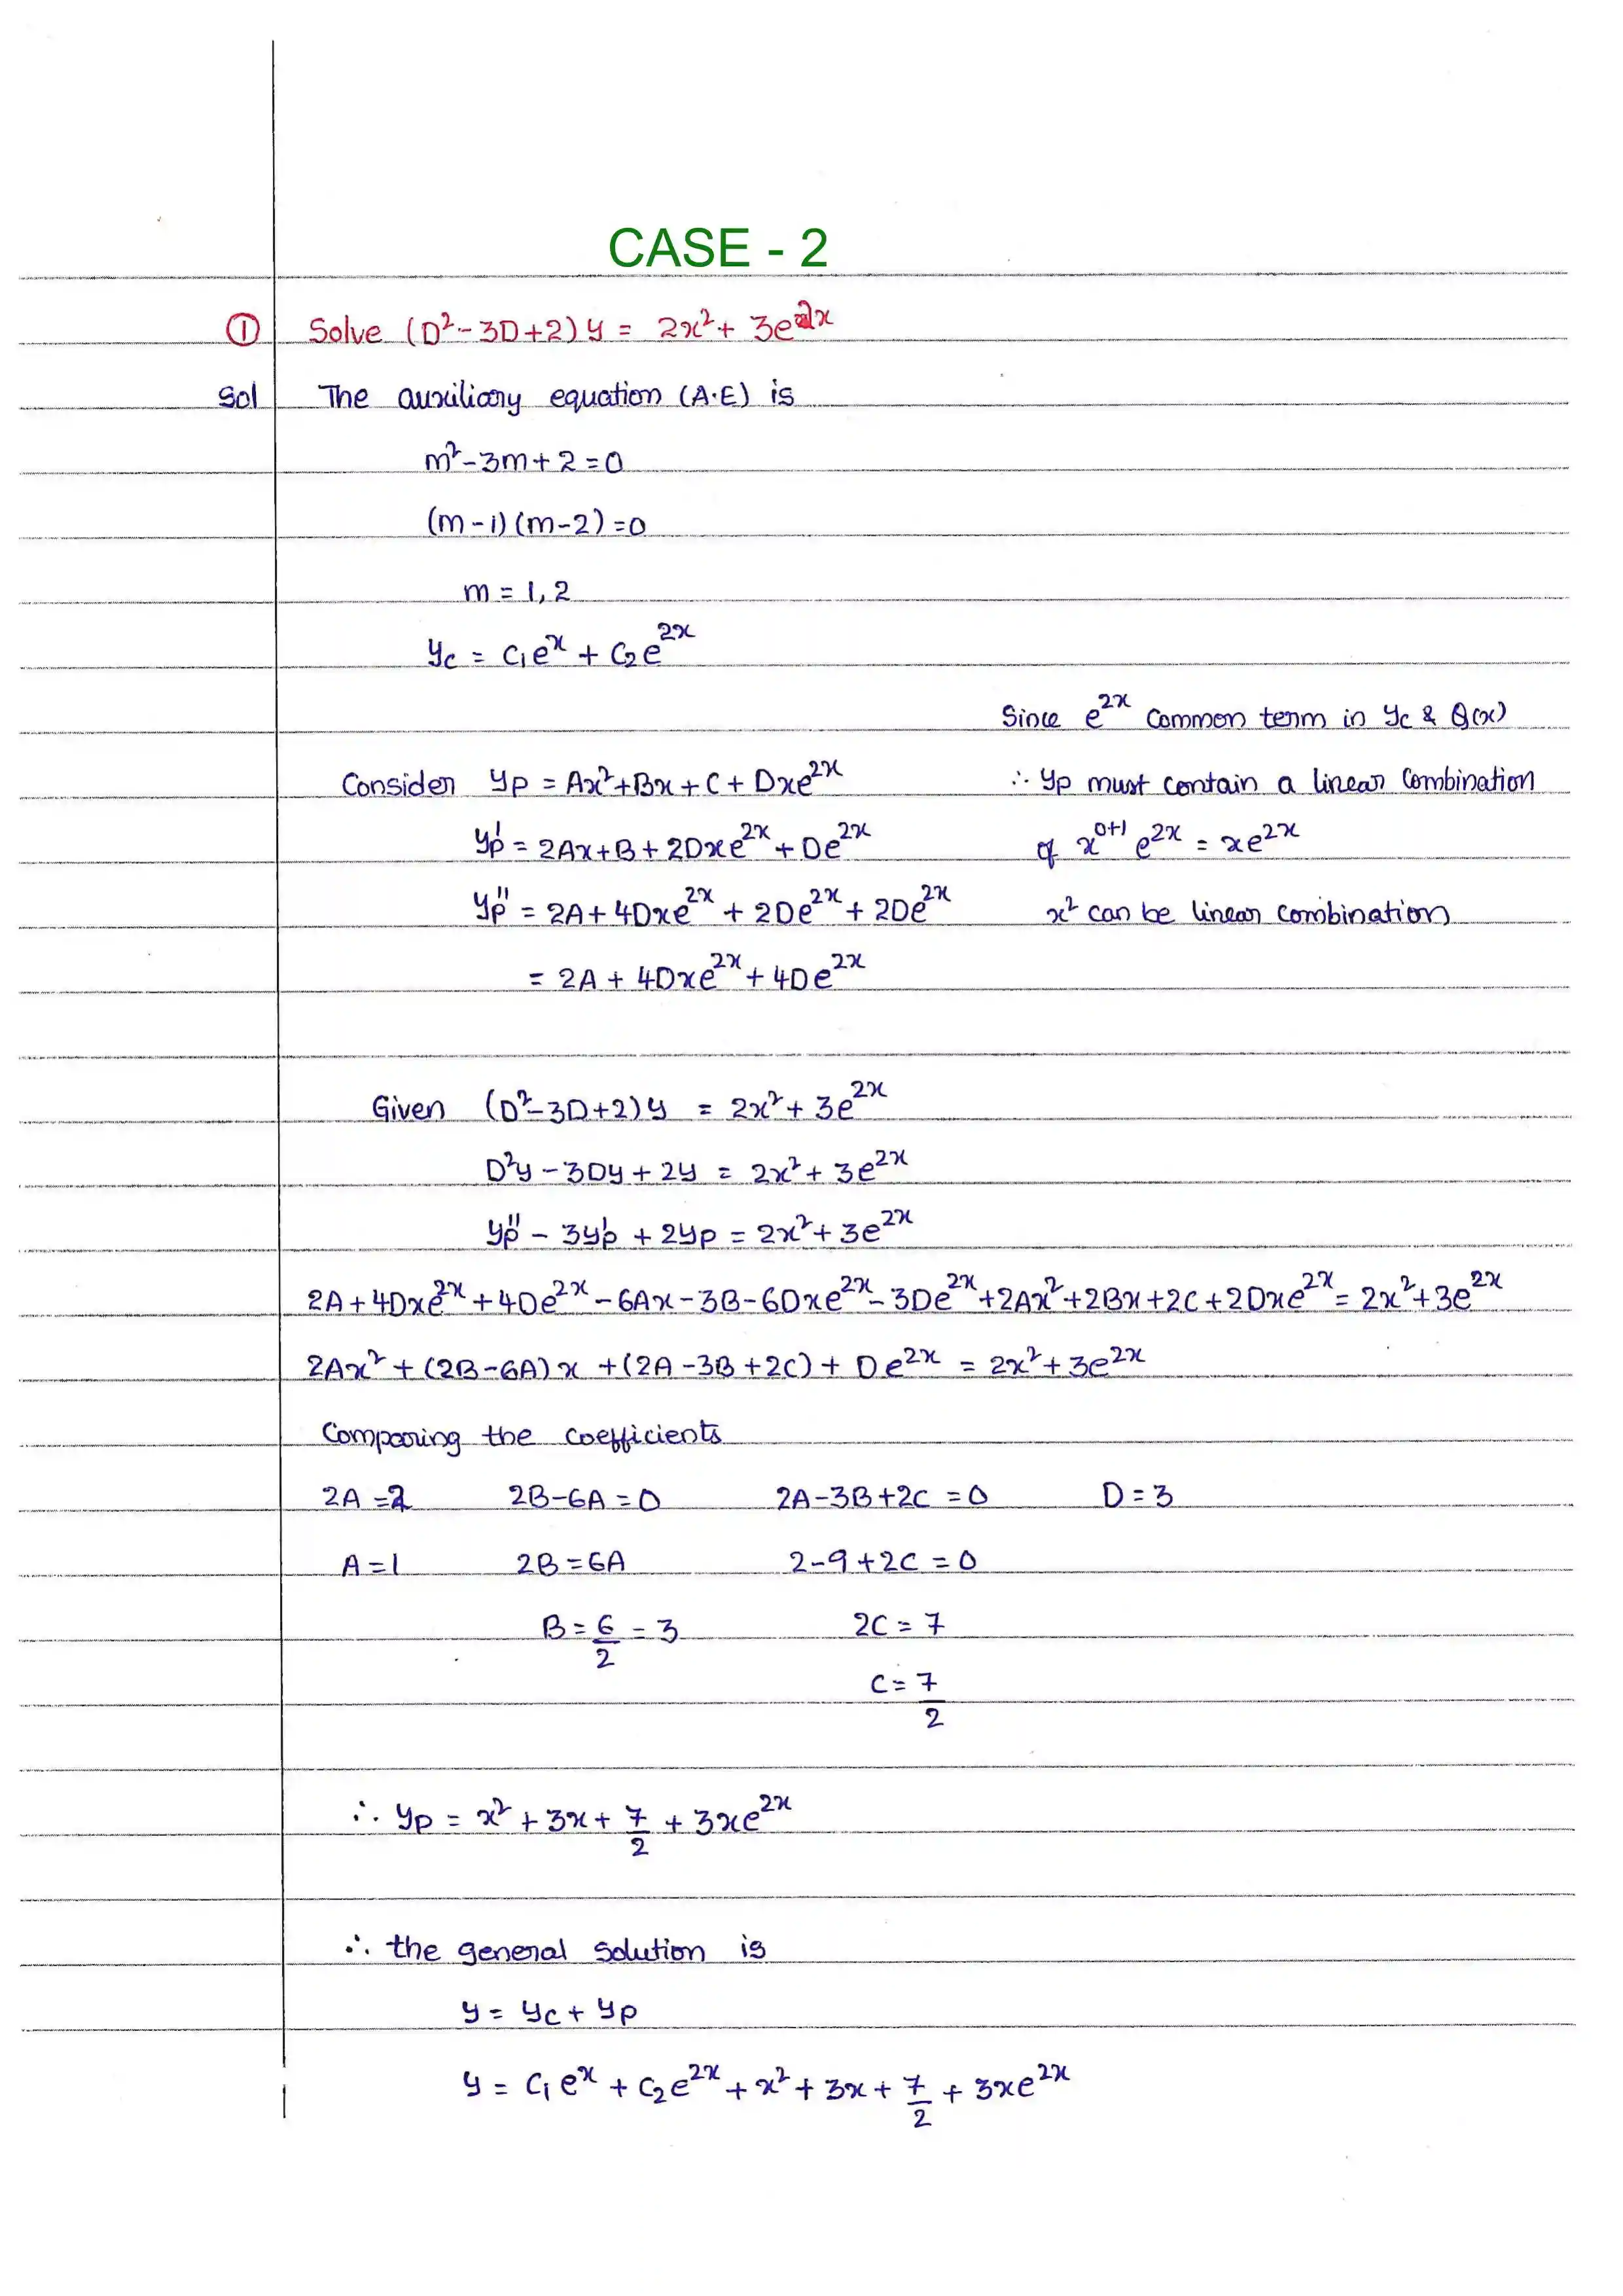 CASE - 2
① Solve (D²-3D+2)y = 2x²+ 3e²ˣ
Sol The auxiliary equation (A·E) is
m²-3m+2=0
(m-1)(m-2)=0
m = 1,2
yc = c₁eˣ + c₂e²ˣ
Since e²ˣ common term in yc & Q(x)
Consider yp = Ax²+Bx+C+Dxe²ˣ ∴ yp must contain a linear combination
yp' = 2Ax+B+2Dxe²ˣ+De²ˣ of x⁰⁺¹ e²ˣ = xe²ˣ
yp'' = 2A+4Dxe²ˣ + 2De²ˣ + 2De²ˣ x² can be linear combination
= 2A + 4Dxe²ˣ + 4De²ˣ
Given (D²-3D+2)y = 2x²+ 3e²ˣ
D²y - 3Dy + 2y = 2x²+ 3e²ˣ
yp'' - 3yp' + 2yp = 2x²+ 3e²ˣ
2A+4Dxe²ˣ+4De²ˣ-6Ax-3B-6Dxe²ˣ-3De²ˣ+2Ax²+2Bx+2C+2Dxe²ˣ = 2x²+3e²ˣ
2Ax² + (2B-6A)x + (2A-3B+2C) + De²ˣ = 2x²+3e²ˣ
Comparing the coefficients
2A=2 2B-6A=0 2A-3B+2C=0 D=3
A=1 2B=6A 2-9+2C=0
B=6/2=3 2C=7
C=7/2
∴ yp = x²+3x+7/2+3xe²ˣ
∴ the general solution is
y = yc + yp
y = c₁eˣ + c₂e²ˣ + x² + 3x + 7/2 + 3xe²ˣ